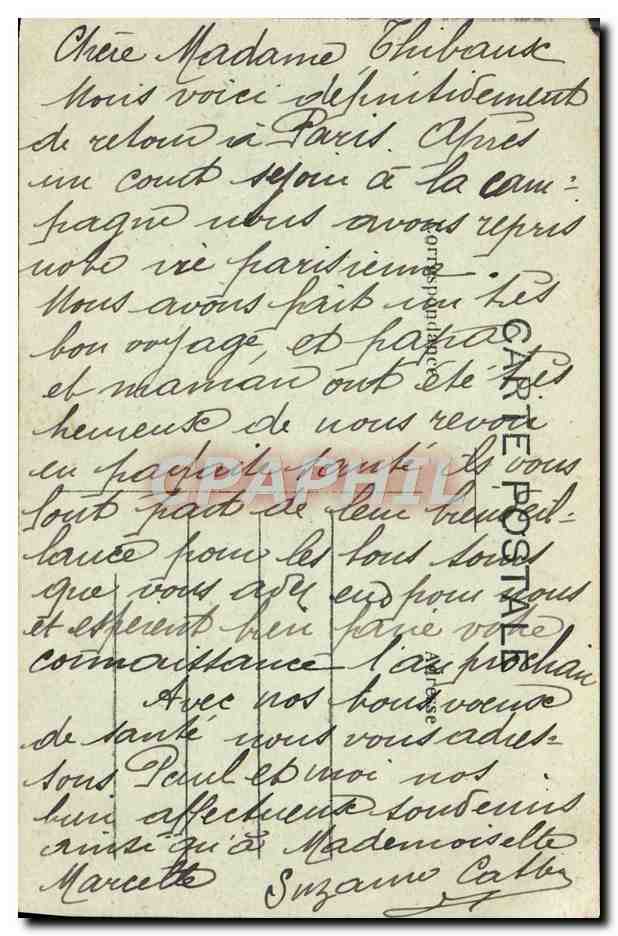 Chère Madame Thibaux
Nous voici définitivement
de retour à Paris. Après
un court sejour à la cam=
pagne nous avons repris
notre vie parisienne.
Nous avons fait un très
bon voyage, et papa
et maman ont été très
heureux de nous revoir
en parfaite santé ils vous
font part de leur bienveil-
lance pour les bons soins
que vous avez eus pour nous
et esperent bien faire votre
connaissance l'an prochain
Avec nos bons voeux
de santé nous vous adres=
sons Paul et moi nos
bien affectueux souvenirs
ainsi qu'à Mademoiselle
Marcelle Suzanne
CARTE POSTALE
Correspondance
Adresse
CPAPHIL